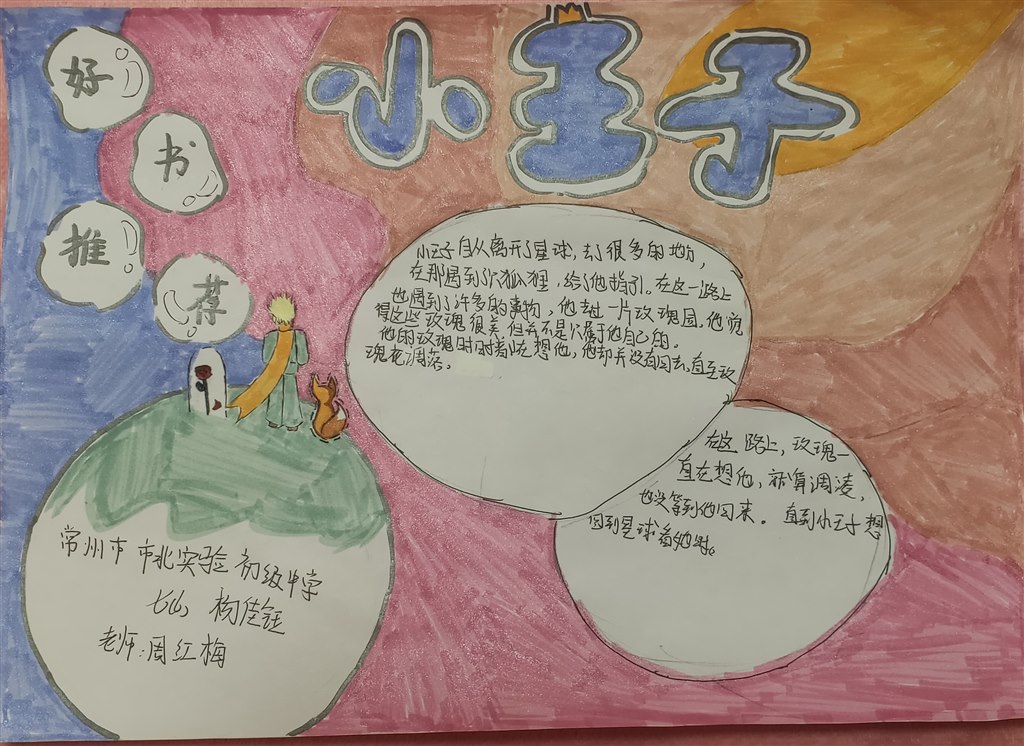 好
书
推
荐
小王子
小王子自从离开了星球,去了很多的地方,
在那遇到了只狐狸,给了他指引。在这一路上
也遇到了许多的事物,他走过一片玫瑰园,他觉
得这些玫瑰很美但并不是只属于他自己的。
他的玫瑰时时都在想他,他却并没有回去,直至玫
瑰花凋落。
在这路上,玫瑰一
直在想他,就算凋凌,
也没等到他回来。直到小王子想
回到星球看她时。
常州市市北实验初级中学
七(4) 杨佳钰
老师:周红梅